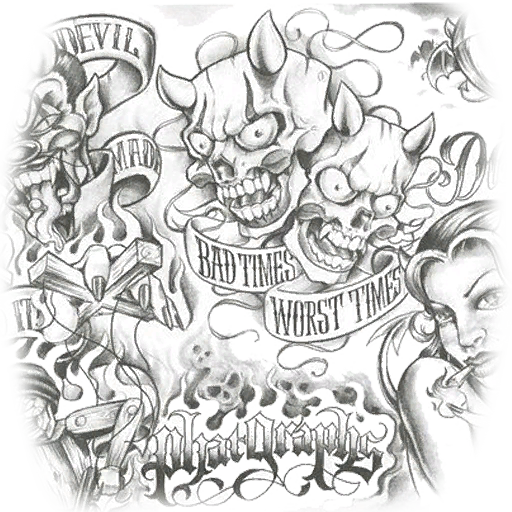 DEVIL
MADE
BAD TIMES
WORST TIMES
phatgraphs